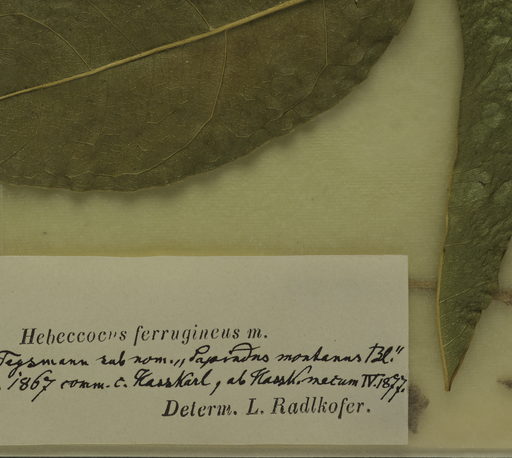 Hebeccocus ferrugineus m.
Teysmann sub nom. „Sapindus montanus Bl."
1867 comm. c. Hasskarl, ab Hassk. mecum IV.1877.
Determ. L. Radlkofer.